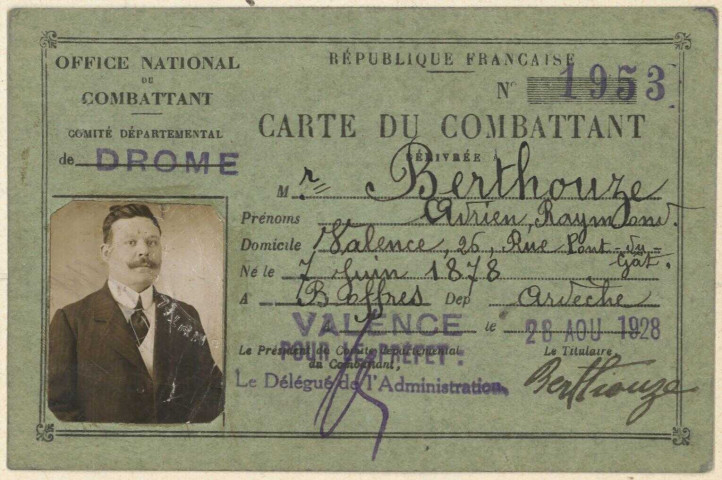 OFFICE NATIONAL
DE
COMBATTANT
COMITÉ DÉPARTEMENTAL
de DROME
RÉPUBLIQUE FRANÇAISE
N° 1953
CARTE DU COMBATTANT
DÉLIVRÉE A
M r Berthouze
Prénoms Adrien, Raymond.
Domicile Valence, 26, Rue Pont-du-
Gât.
Né le 7 Juin 1878
A Boffres Dep Ardèche
VALENCE le 28 AOU 1928
Le Président du Comité départemental
du Combattant,
POUR LE PREFET :
Le Délégué de l'Administration,
Le Titulaire,
Berthouze